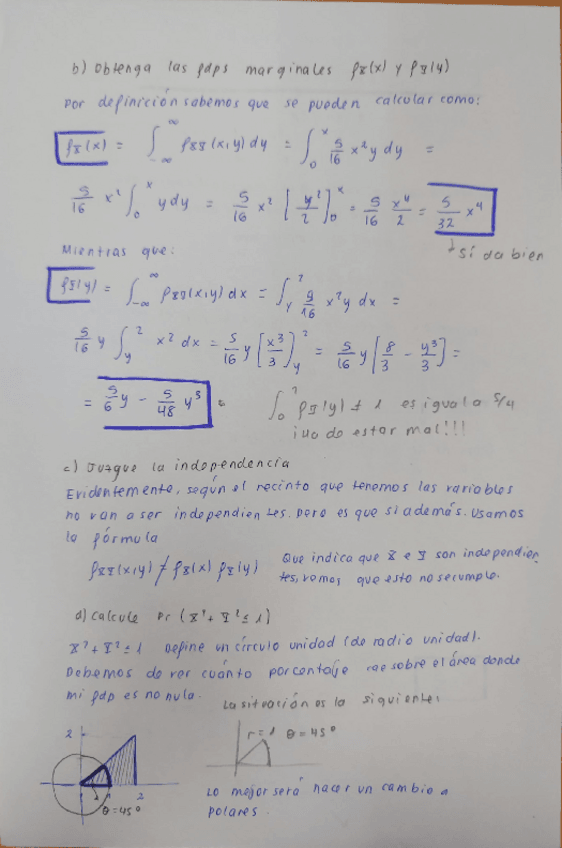 b) Obtenga las fdps marginales fX(x) y fY(y)
Por definición sabemos que se pueden calcular como:
fX(x) = ∫_{-∞}^{∞} fXY(x,y) dy = ∫_0^x 5/16 x² y dy =
5/16 x² ∫_0^x y dy = 5/16 x² [y²/2]_0^x = 5/16 x⁴/2 = 5/32 x⁴
↓ sí da bien
Mientras que:
fY(y) = ∫_{-∞}^{∞} fXY(x,y) dx = ∫_y^2 5/16 x² y dx =
5/16 y ∫_y^2 x² dx = 5/16 y [x³/3]_y^2 = 5/16 y [8/3 - y³/3] =
= 5/6 y - 5/48 y³
∫_0^2 fY(y) ≠ 1 es igual a 5/4
¡¡Ha de estar mal!!!
c) Juzgue la independencia
Evidentemente, según el recinto que tenemos las variables
no van a ser independientes. Pero es que si además. Usamos
la fórmula
fXY(x,y) ≠ fX(x) fY(y) Que indica que X e Y son independien
tes, vemos que esto no se cumple.
d) Calcule Pr (X² + Y² ≤ 1)
X² + Y² ≤ 1 Define un círculo unidad (de radio unidad).
Debemos de ver cuánto porcentaje cae sobre el área donde
mi fdp es no nula.
La situación es la siguiente:
2
r=1 θ=45°
1 2
θ=45°
Lo mejor será hacer un cambio a
polares.